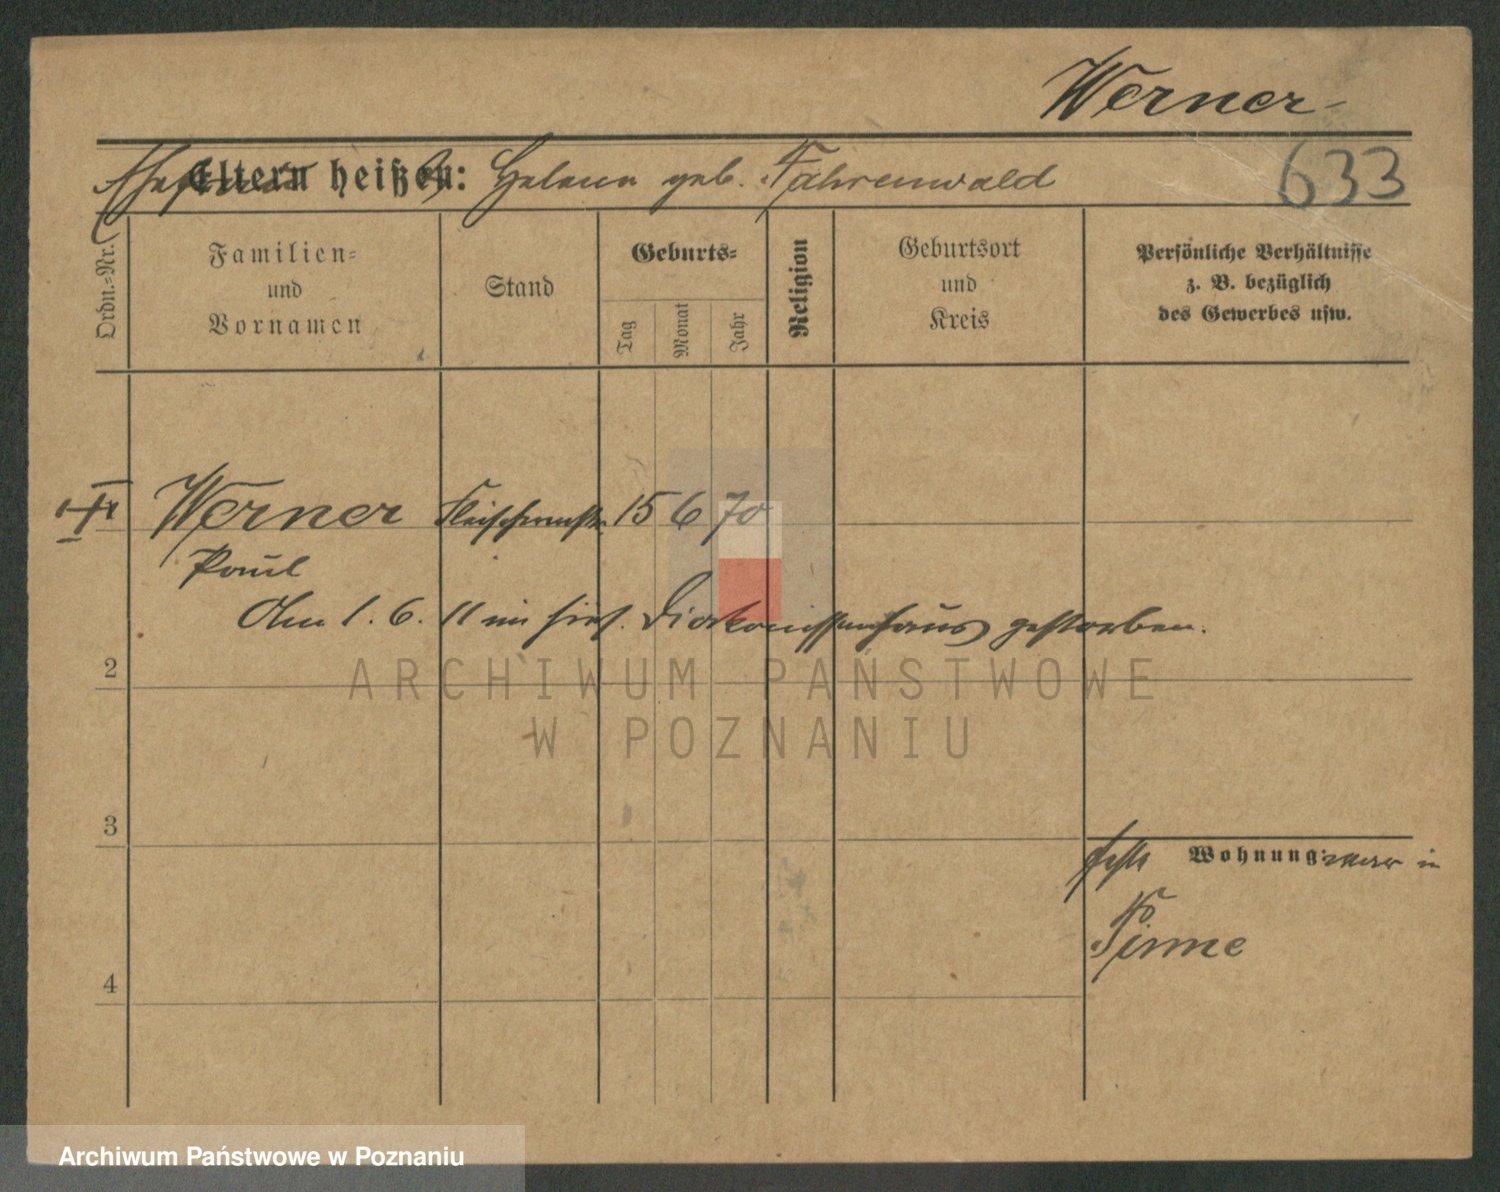 Werner
Eltern heißen: Helene geb. Fahrenwald
633
Ordn.-Nr.
Familien-
und
Vornamen
Stand
Geburts-
Tag
Monat
Jahr
Religion
Geburtsort
und
Kreis
Persönliche Verhältnisse
z. B. bezüglich
des Gewerbes usw.
Werner Fleischermstr. 15 6 70
Paul
Am 1. 6. 11 im hies. Diakonissenhaus gestorben.
2
ARCHIWUM PAŃSTWOWE
W POZNANIU
3
Wohnung: in
Pinne
4
Archiwum Państwowe w Poznaniu